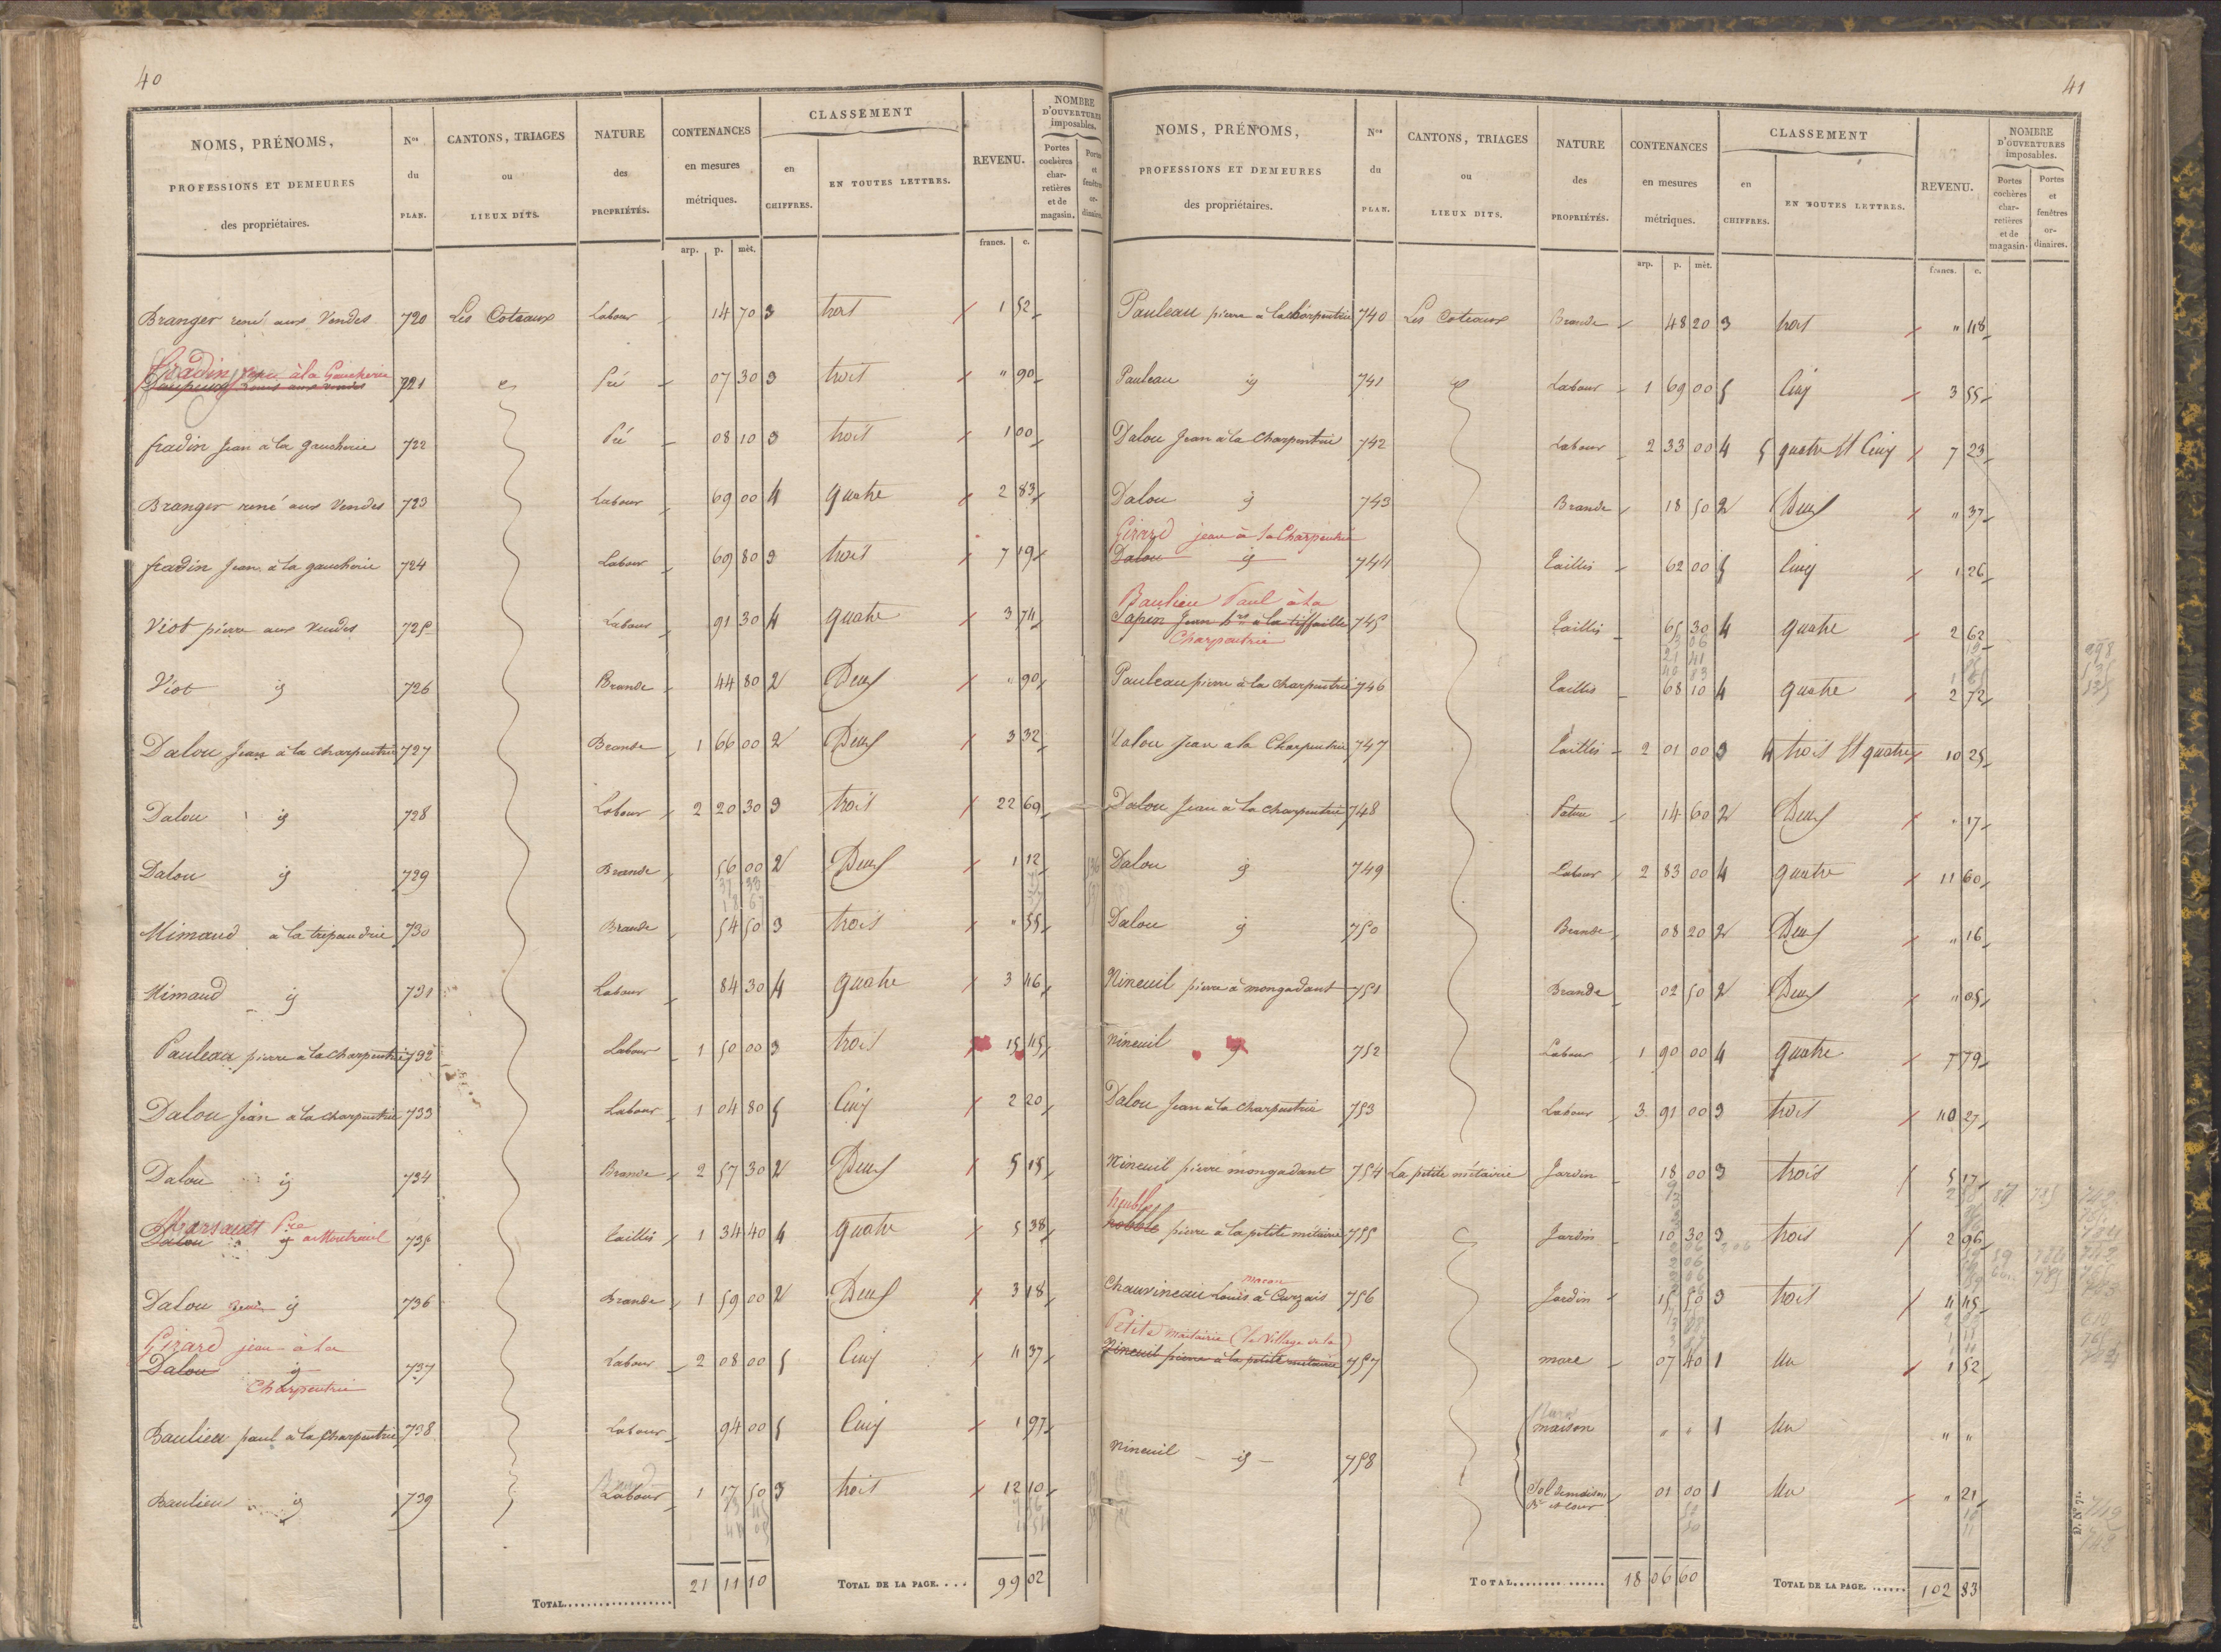 40
NOMS, PRÉNOMS, PROFESSIONS ET DEMEURES des propriétaires. | Nos du PLAN. | CANTONS, TRIAGES ou LIEUX DITS. | NATURE des PROPRIÉTÉS. | CONTENANCES en mesures métriques. | CLASSEMENT en CHIFFRES. | EN TOUTES LETTRES. | REVENU. | NOMBRE D'OUVERTURES imposables. Portes cochères charretières et de magasin. | Portes et fenêtres ordinaires.
arp. p. mèt. francs. c.
Branger rené aux Vendes 720 Les Coteaux Labour 14 70 3 trois 1 52
Fradin à la Gaucherie
721 Pré 07 30 3 trois " 90
fradin Jean à la gaucherie 722 Pré 08 10 3 trois 1 00
Branger rené aux Vendes 723 Labour 69 00 4 quatre 2 83
fradin Jean à la gaucherie 724 Labour 69 80 3 trois 7 19
Viot pierre aux Vendes 725 Labour 91 30 4 quatre 3 74
Viot id 726 Brande 44 80 2 Deux " 90
Dalou Jean à la charpentrie 727 Brande 1 66 00 2 Deux 3 32
Dalou id 728 Labour 2 20 30 3 trois 22 69
Dalou id 729 Brande 56 00 2 Deux 1 12
Mimaud à la tripaudrie 730 Brande 54 50 3 trois " 55
Mimaud id 731 Labour 84 30 4 quatre 3 46
Pauleau pierre à la charpentrie 732 Labour 1 50 00 3 trois 15 45
Dalou Jean à la charpentrie 733 Labour 1 04 80 5 Cinq 2 20
Dalou id 734 Brande 2 57 30 2 Deux 5 15
Marsault Pre à Montreuil
Dalou id 735 Taillis 1 34 40 4 quatre 5 38
Dalou id 736 Brande 1 59 00 2 Deux 3 18
Girard jean à la
Dalou id 737 Labour 2 08 00 5 Cinq 4 37
Charpentrie
Baulieu paul à la Charpentrie 738 Labour 94 00 5 Cinq 1 97
Baulieu id 739 Labour 1 17 50 3 trois 12 10
TOTAL 21 11 10 TOTAL DE LA PAGE.... 99 02
41
NOMS, PRÉNOMS, PROFESSIONS ET DEMEURES des propriétaires. | Nos du PLAN. | CANTONS, TRIAGES ou LIEUX DITS. | NATURE des PROPRIÉTÉS. | CONTENANCES en mesures métriques. | CLASSEMENT en CHIFFRES. | EN TOUTES LETTRES. | REVENU. | NOMBRE D'OUVERTURES imposables. Portes cochères charretières et de magasin. | Portes et fenêtres ordinaires.
arp. p. mèt. francs. c.
Pauleau pierre à la charpentrie 740 Les Coteaux Brande 48 20 3 trois " 48
Pauleau id 741 Labour 1 69 00 5 Cinq 3 55
Dalou Jean à la Charpentrie 742 Labour 2 33 00 4 5 quatre et Cinq 7 23
Dalou id 743 Brande 18 50 2 Deux " 37
Girard jean à la Charpentrie
Dalou id 744 Taillis 62 00 5 Cinq 1 26
Baulieu Paul à la
Papin Jean à la tiffaille 745 Taillis 65 30 4 quatre 2 62
Charpentrie
Pauleau pierre à la charpentrie 746 Taillis 68 10 4 quatre 2 72
Dalou Jean a la Charpentrie 747 Taillis 2 01 00 3 4 trois et quatre 10 25
Dalou Jean à la charpentrie 748 Pature 14 60 2 Deux " 17
Dalou id 749 Labour 2 83 00 4 quatre 11 60
Dalou id 750 Brande 08 20 2 Deux " 16
Nineuil pierre à mongadant 751 Brande 02 50 2 Deux " 05
nineuil id 752 Labour 1 90 00 4 quatre 7 79
Dalou Jean à la charpentrie 753 Labour 3 91 00 3 trois 40 27
Nineuil pierre mongadant 754 La petite métairie Jardin 18 00 3 trois 5 17
pierre à la petite métairie 755 Jardin 10 30 3 trois 2 96
macon
Chauvineau Louis à Curzais 756 Jardin 15 50 3 trois 4 45
Petite maitairie (le Village de la)
Nineuil pierre à la petite métairie 757 mare 07 40 1 Un 1 52
maison " " 1 Un " "
nineuil id 758
Sol de maison Bt et cour 01 00 1 Un " 21
D. No 71.
TOTAL 18 06 60 TOTAL DE LA PAGE. ...... 102 83